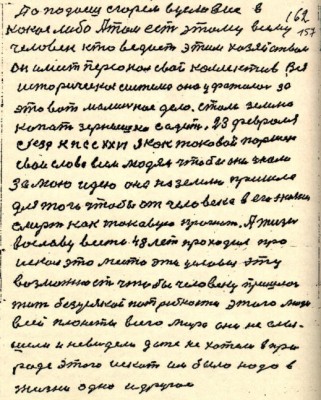 162
157
человек кто ведет этим хозяйством
он имеет персонал свой коллектив Вся
историческая система она ухватилась за
это вот малинькое дело. стали землю
копать зернышко садить. 23 февраля
съезд КПСС XXVI я как таковой
свои слова всем людям чтобы они знали
за мою идею она на землю пришла
для того чтобы от человека в его жизни
смерть как таковую прогнать. А жизнь
во славу ввести 48 лет проходил про
искал это место эти условия эту
возможность чтобы человеку пришлось
жить без всякой потребности этого люди
всей планеты всего мира они не слы-
шали и невидели даже не хотели в при
роде этого искать им было надо в
жизни одно и другое